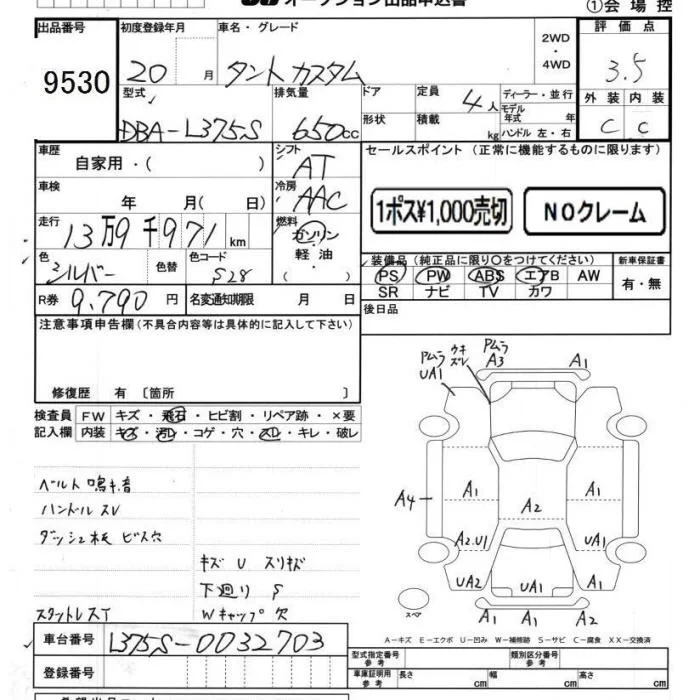 オークション出品申込書
①会場控
出品番号
9530
初度登録年月
20 月
車名・グレード
タント カスタム
2WD
・
4WD
評価点
3.5
外装 内装
C C
型式
DBA-L375S
排気量
650cc
ドア
形状
定員
4人
積載
kg
ディーラー・並行
モデル
年式 年
ハンドル 左・右
車歴
自家用・( )
シフト
AT
セールスポイント (正常に機能するものに限ります)
1ポス¥1,000売切
NOクレーム
車検
年 月( 日)
冷房
AAC
走行
13万9千971km
燃料
ガソリン
軽油
( )
色
シルバー
色替
色コード
S28
装備品 (純正品に限り○をつけてください)
PS PW ABS エアB AW
SR ナビ TV カワ
新車保証書
有・無
R券 9,790円
名変通知期限 月 日
後日品
注意事項申告欄 (不具合内容等は具体的に記入して下さい)
修復歴 有 〔箇所 〕
検査員
記入欄
FW キズ・飛石・ヒビ割・リペア跡・×要
内装 キズ・汚れ・コゲ・穴・スレ・キレ・破レ
ベルト鳴キ音
ハンドルスレ
ダッシュ板 ビス穴
キズ U スリキズ
下廻り S
Wキャップ欠
スタットレスT
Pムラ
UA1
ウキ
ズレ
Pムラ
A3
A1
A4
A1
A1
A2
A2.U1
UA1
UA2
UA1
A1
A1
A1
A2
スペア
A-キズ E-エクボ U-凹み W-補修跡 S-サビ C-腐食 XX-交換済
車台番号
L375S-0032703
登録番号
型式指定番号
参考
類別区分番号
参考
車庫証明用
参考
長さ cm
幅 cm
高さ cm